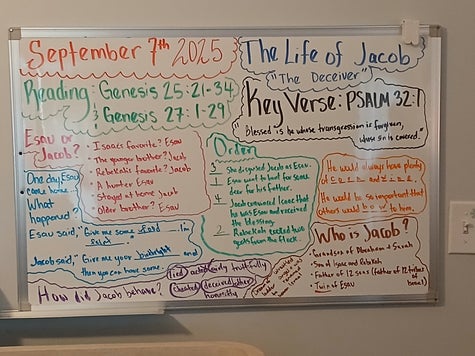 September 7th 2025
The Life of Jacob
"The Deceiver"
Reading: Genesis 25:21-34
& Genesis 27:1-29
Key Verse: PSALM 32:1
"Blessed is he whose transgression is forgiven,
whose sin is covered."
Esau or
Jacob?
Isaacs favorite? Esau
The younger brother? Jacob
Rebekahs favorite? Jacob
A hunter Esau
Stayed at home Jacob
Older brother? Esau
Order
3 She disguised Jacob as Esau.
1 Esau went to hunt for some
deer for his father.
4 Jacob convinced Isaac that
he was Esau and received
the blessing.
2 Rebekah cooked two
goats from the flock.
He would always have plenty
of
He would be so important that
others would bow to him.
One day Esau
came home.
What
happened?
Esau said, "Give me some food I'm
Jacob said, "Give me your birthright and
then you can have some.
Who is Jacob?
Grandson of Abraham & Sarah
Son of Isaac and Rebekah
Father of 12 sons (father of 12 tribes
of Israel)
Twin of Esau
How did Jacob behave?
lied actedly truthfully
cheated deceived
honestly